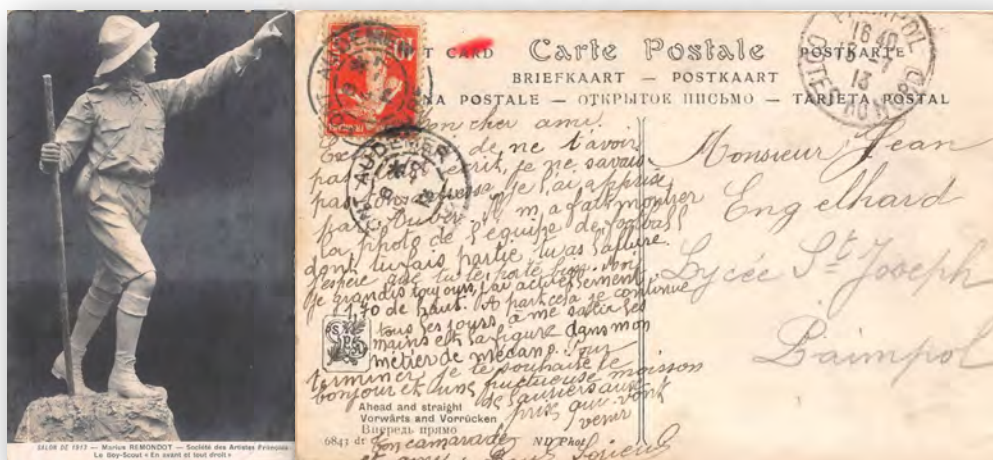 SALON DE 1913 — Marius REMONDOT — Société des Artistes Français
Le Boy-Scout « En avant et tout droit »
CARD Carte Postale POSTKARTE
BRIEFKAART — POSTKAART
NA POSTALE — ОТКРЫТОЕ ПИСЬМО — TARJETA POSTAL
10
PONT AUDEMER
PONT AUDEMER
PAIMPOL
16 40
15 - 7
13
COTES DU NORD
Mon cher ami.
de ne t'avoir
pas écrit, je ne savais
pas ton adresse, je l'ai apprise
par Auber. Il m'a fait montrer
la photo de l'équipe de football
dont tu fais partie, tu as l'allure.
J'espère que tu te porte bien. Moi
je grandis toujours, j'ai actuellement
1,70 de haut. A part cela je continue
tous les jours, à me salir les
mains et la figure dans mon
métier de mécano. Pour
terminer, je te souhaite le
bonjour et une fructueuse moisson
de lauriers aux
prix qui vont
venir
Ton camarade
et ami
Monsieur Jean
Engelhard
Lycée St Joseph
Paimpol
Ahead and straight
Vorwärts and Vorrücken
Впередъ прямо
6841 dt ND Phot